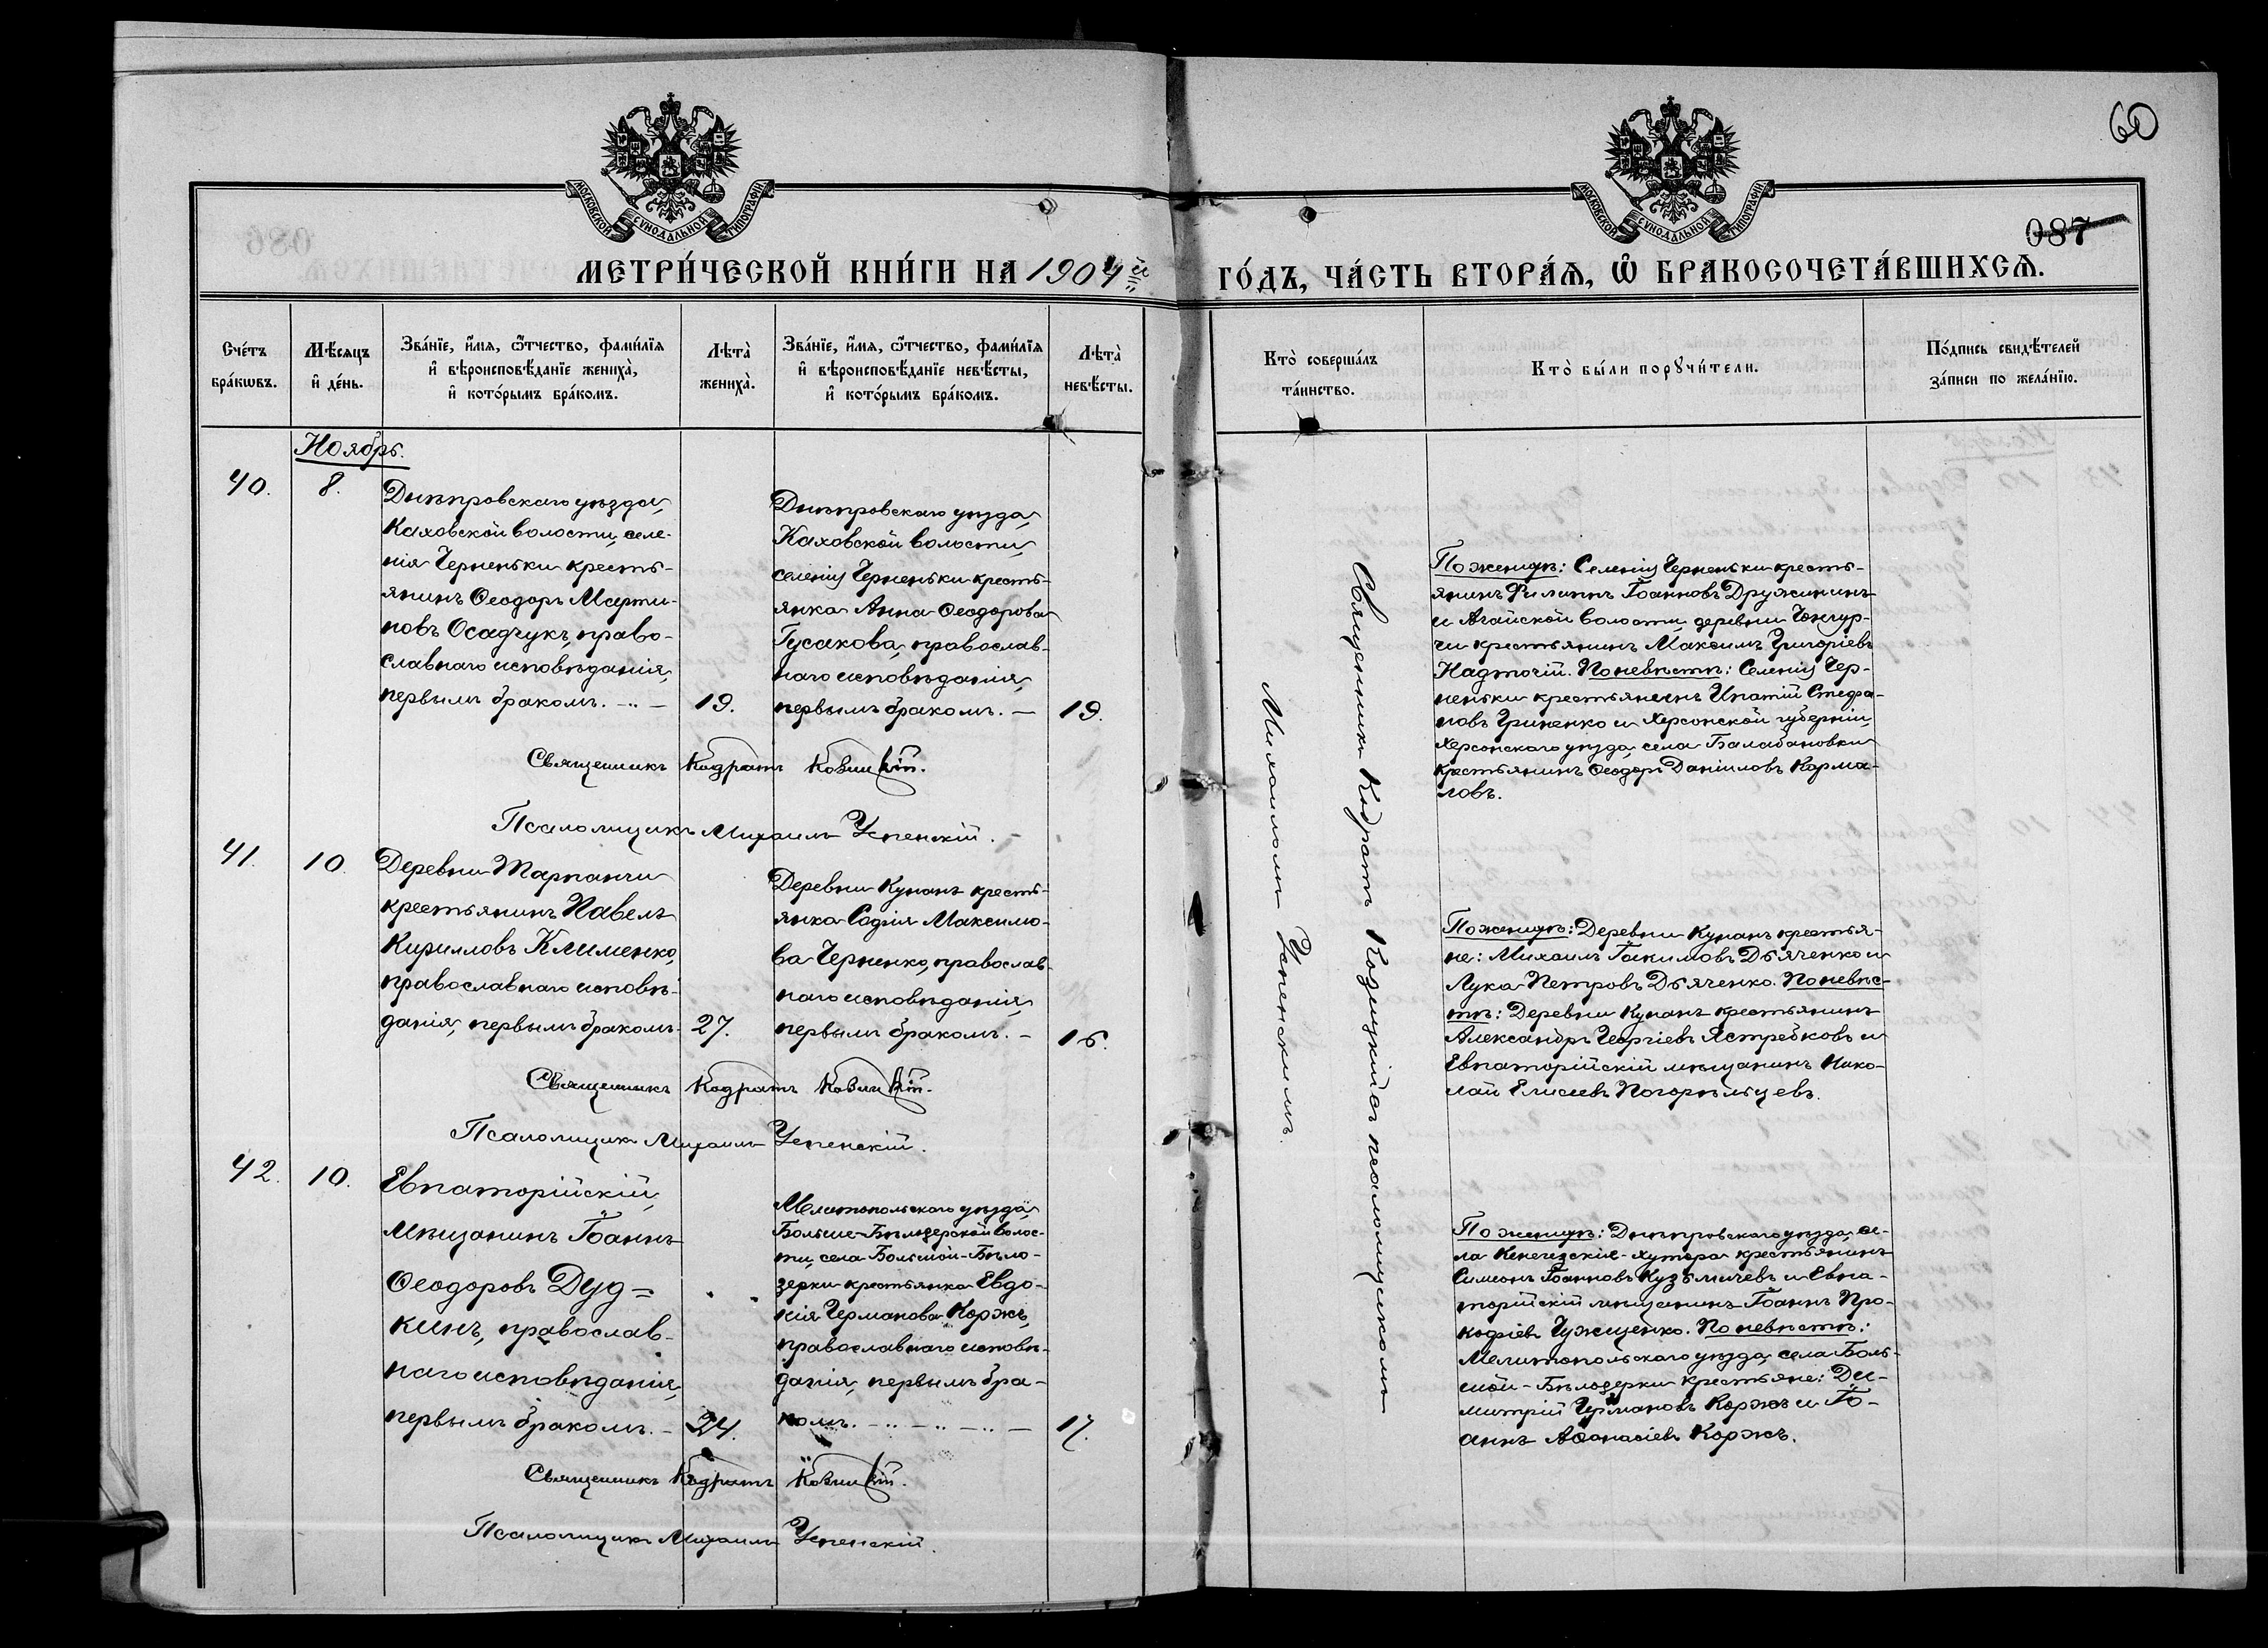 60
087
МОСКОВСКОЙ СѴНОДАЛЬНОЙ ТИПОГРАФІИ
МОСКОВСКОЙ СѴНОДАЛЬНОЙ ТИПОГРАФІИ
МЕТРИ́ЧЕСКОЙ КНИ́ГИ НА 1904й
ГО́ДЪ, ЧА́СТЬ ВТОРА́Ѧ, Ѽ БРАКОСОЧЕТА́ВШИХСѦ.
Сче́тъ
бра́кѡвъ.
Мѣ́сяцъ
и҆ де́нь.
Зва́нїе, и҆́мя, ѻ҆́тчество, фами́лїя
и҆ вѣроисповѣ́данїе жениха̀,
и҆ кото́рымъ бра́комъ.
Лѣта̀
жениха̀.
Зва́нїе, и҆́мя, ѻ҆́тчество, фами́лїя
и҆ вѣроисповѣ́данїе невѣ́сты,
и҆ кото́рымъ бра́комъ.
Лѣта̀
невѣ́сты.
Кто̀ соверша́лъ
та́инство.
Кто̀ бы́ли порꙋчи́тели.
По́дпись свидѣ́телей
за́писи по жела́нїю.
Ноябрь.
40.
8.
Днѣпровскаго уѣзда,
Каховской волости, селе-
нія Черненьки кресть-
янинъ Ѳеодоръ Марти-
новъ Осадчукъ, право-
славнаго исповѣданія,
первымъ бракомъ. —
19.
Днѣпровскаго уѣзда,
Каховской волости,
селенія Черненьки кресть-
янка Анна Ѳеодорова
Гусакова, православ-
наго исповѣданія,
первымъ бракомъ. —
19.
Священникъ Кодратъ
Псаломщикъ Михаилъ Успенскій.
Священникъ Кодратъ Козицкій съ псаломщикомъ
Михаиломъ Успенскимъ.
По женихѣ: Селенія Черненьки кресть-
янинъ Филиппъ Іоанновъ Дружининъ
и Агайской волости, деревни
крестьянинъ Максимъ Григоріевъ
Надточій. По невѣстѣ: Селенія Чер-
неньки крестьянинъ Ипатій Стефа-
новъ Гриненко и Херсонской губерніи,
Херсонскаго уѣзда, села Балабановки
крестьянинъ Ѳеодоръ Даніиловъ Карма-
ловъ.
41.
10.
Деревни Тарпанчи
крестьянинъ Павелъ
Кирилловъ Клименко,
православнаго исповѣ-
данія, первымъ бракомъ.
27.
Деревни Кунанъ кресть-
янка Софія Максимо-
ва Черненко, православ-
наго исповѣданія,
первымъ бракомъ. —
16.
Священникъ Кодратъ
Псаломщикъ Михаилъ Успенскій.
По женихѣ: Деревни Кунанъ крестья-
не: Михаилъ Іакимовъ Дьяченко и
Лука Петровъ Дьяченко. По невѣс-
тѣ: Деревни Кунанъ крестьянинъ
Александръ Георгіевъ Ястребковъ и
Евпаторійскій мѣщанинъ Нико-
лай Елисеевъ Погорѣльцевъ.
42.
10.
Евпаторійскій
мѣщанинъ Іоаннъ
Ѳеодоровъ Дуд=
кинъ, православ-
наго исповѣданія,
первымъ бракомъ. —
24.
Мелитопольскаго уѣзда,
Больше-Бѣлозерской волос-
ти, села Большой-Бѣло-
зерки крестьянка Евдо-
кія Германова Коржъ,
православнаго исповѣ-
данія, первымъ бра-
комъ. —
17.
Священникъ Кодратъ
Псаломщикъ Михаилъ Успенскій.
По женихѣ: Днѣпровскаго уѣзда, се-
ла хутора крестьянинъ
Симеонъ Іоанновъ Кузьмичевъ и Евпа-
торійскій мѣщанинъ Іоаннъ Про-
кофіевъ Гужщенко. По невѣстѣ:
Мелитопольскаго уѣзда, села Боль-
шой-Бѣлозерки крестьяне: Ди-
митрій Германовъ Коржъ и Іо-
аннъ Аѳанасіевъ Коржъ.